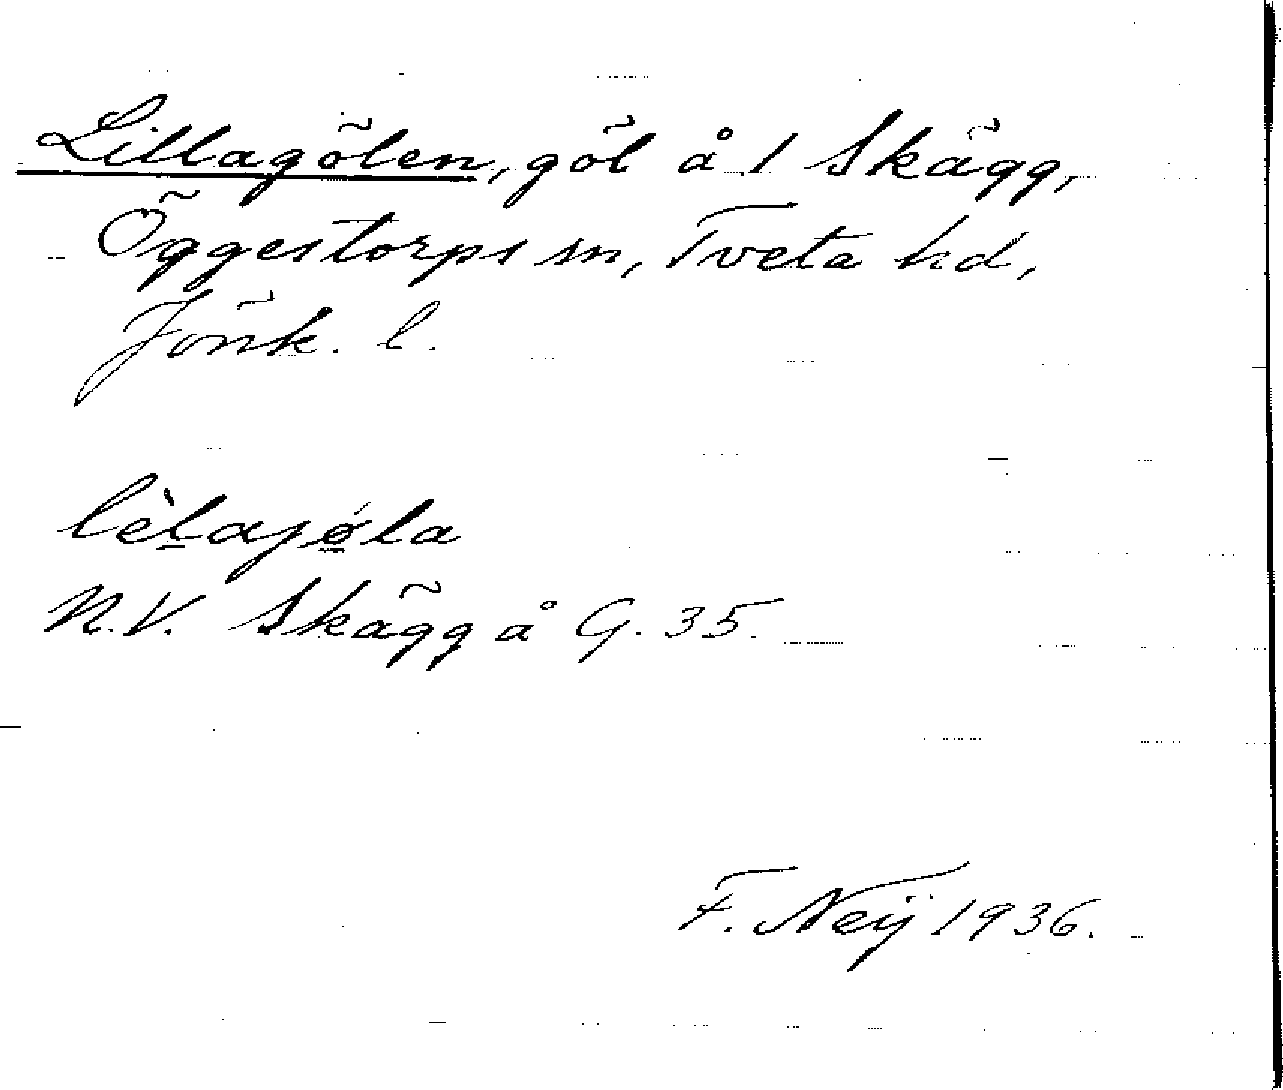 Lillagölen, göl å 1 Skägg,
Öggestorps sn, Tveta hd,
Jönk. l.
lèlajøla
N.V. Skägg å G. 35.
F. Neij 1936.